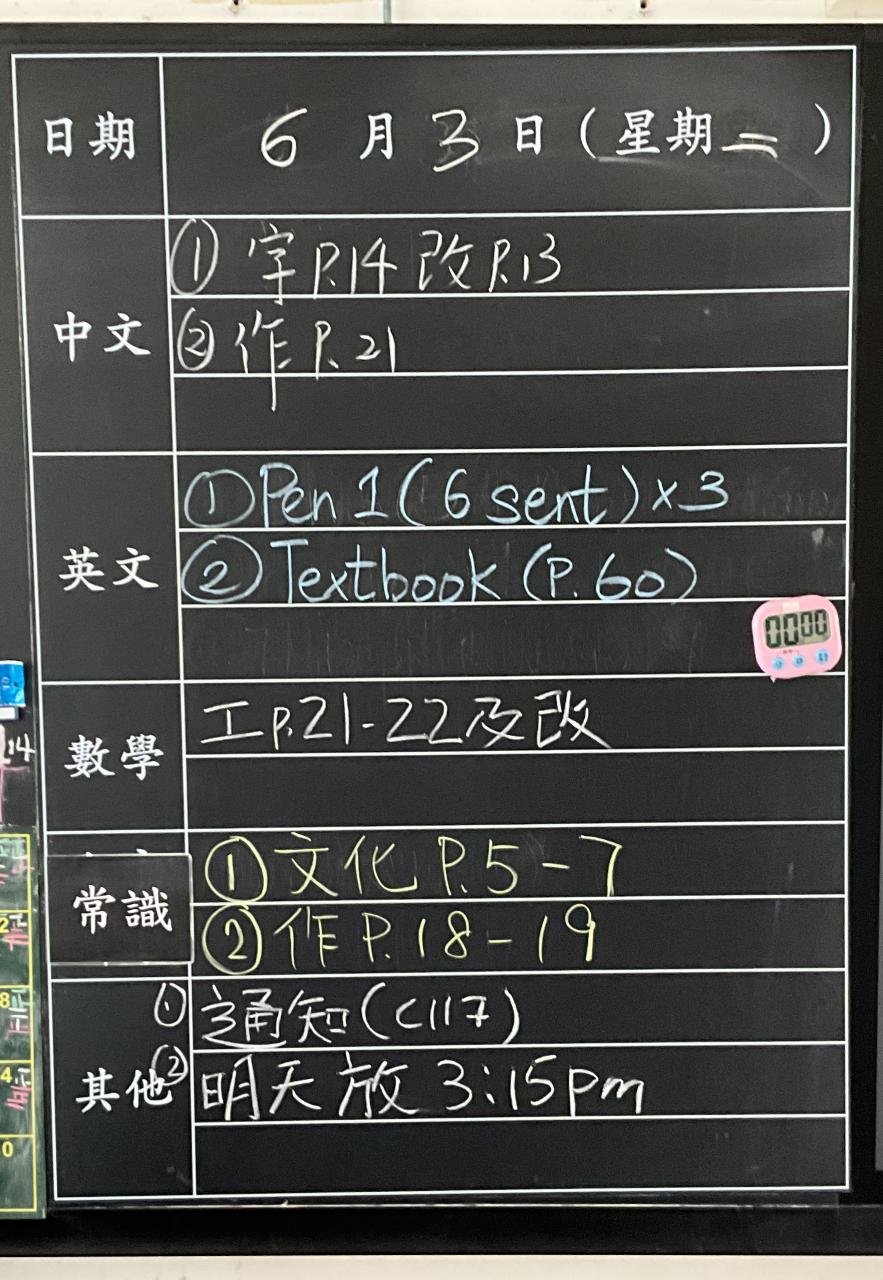 日期 6月3日(星期二)
中文
① 字P.14 改P.13
② 作P.21
英文
① Pen 1 (6 sent) x 3
② Textbook (P. 60)
00 00
數學
工P.21-22及改
常識
① 文化 P.5-7
② 作P.18-19
其他
① 通知(C117)
② 明天放 3:15pm
14
2
8
4
0